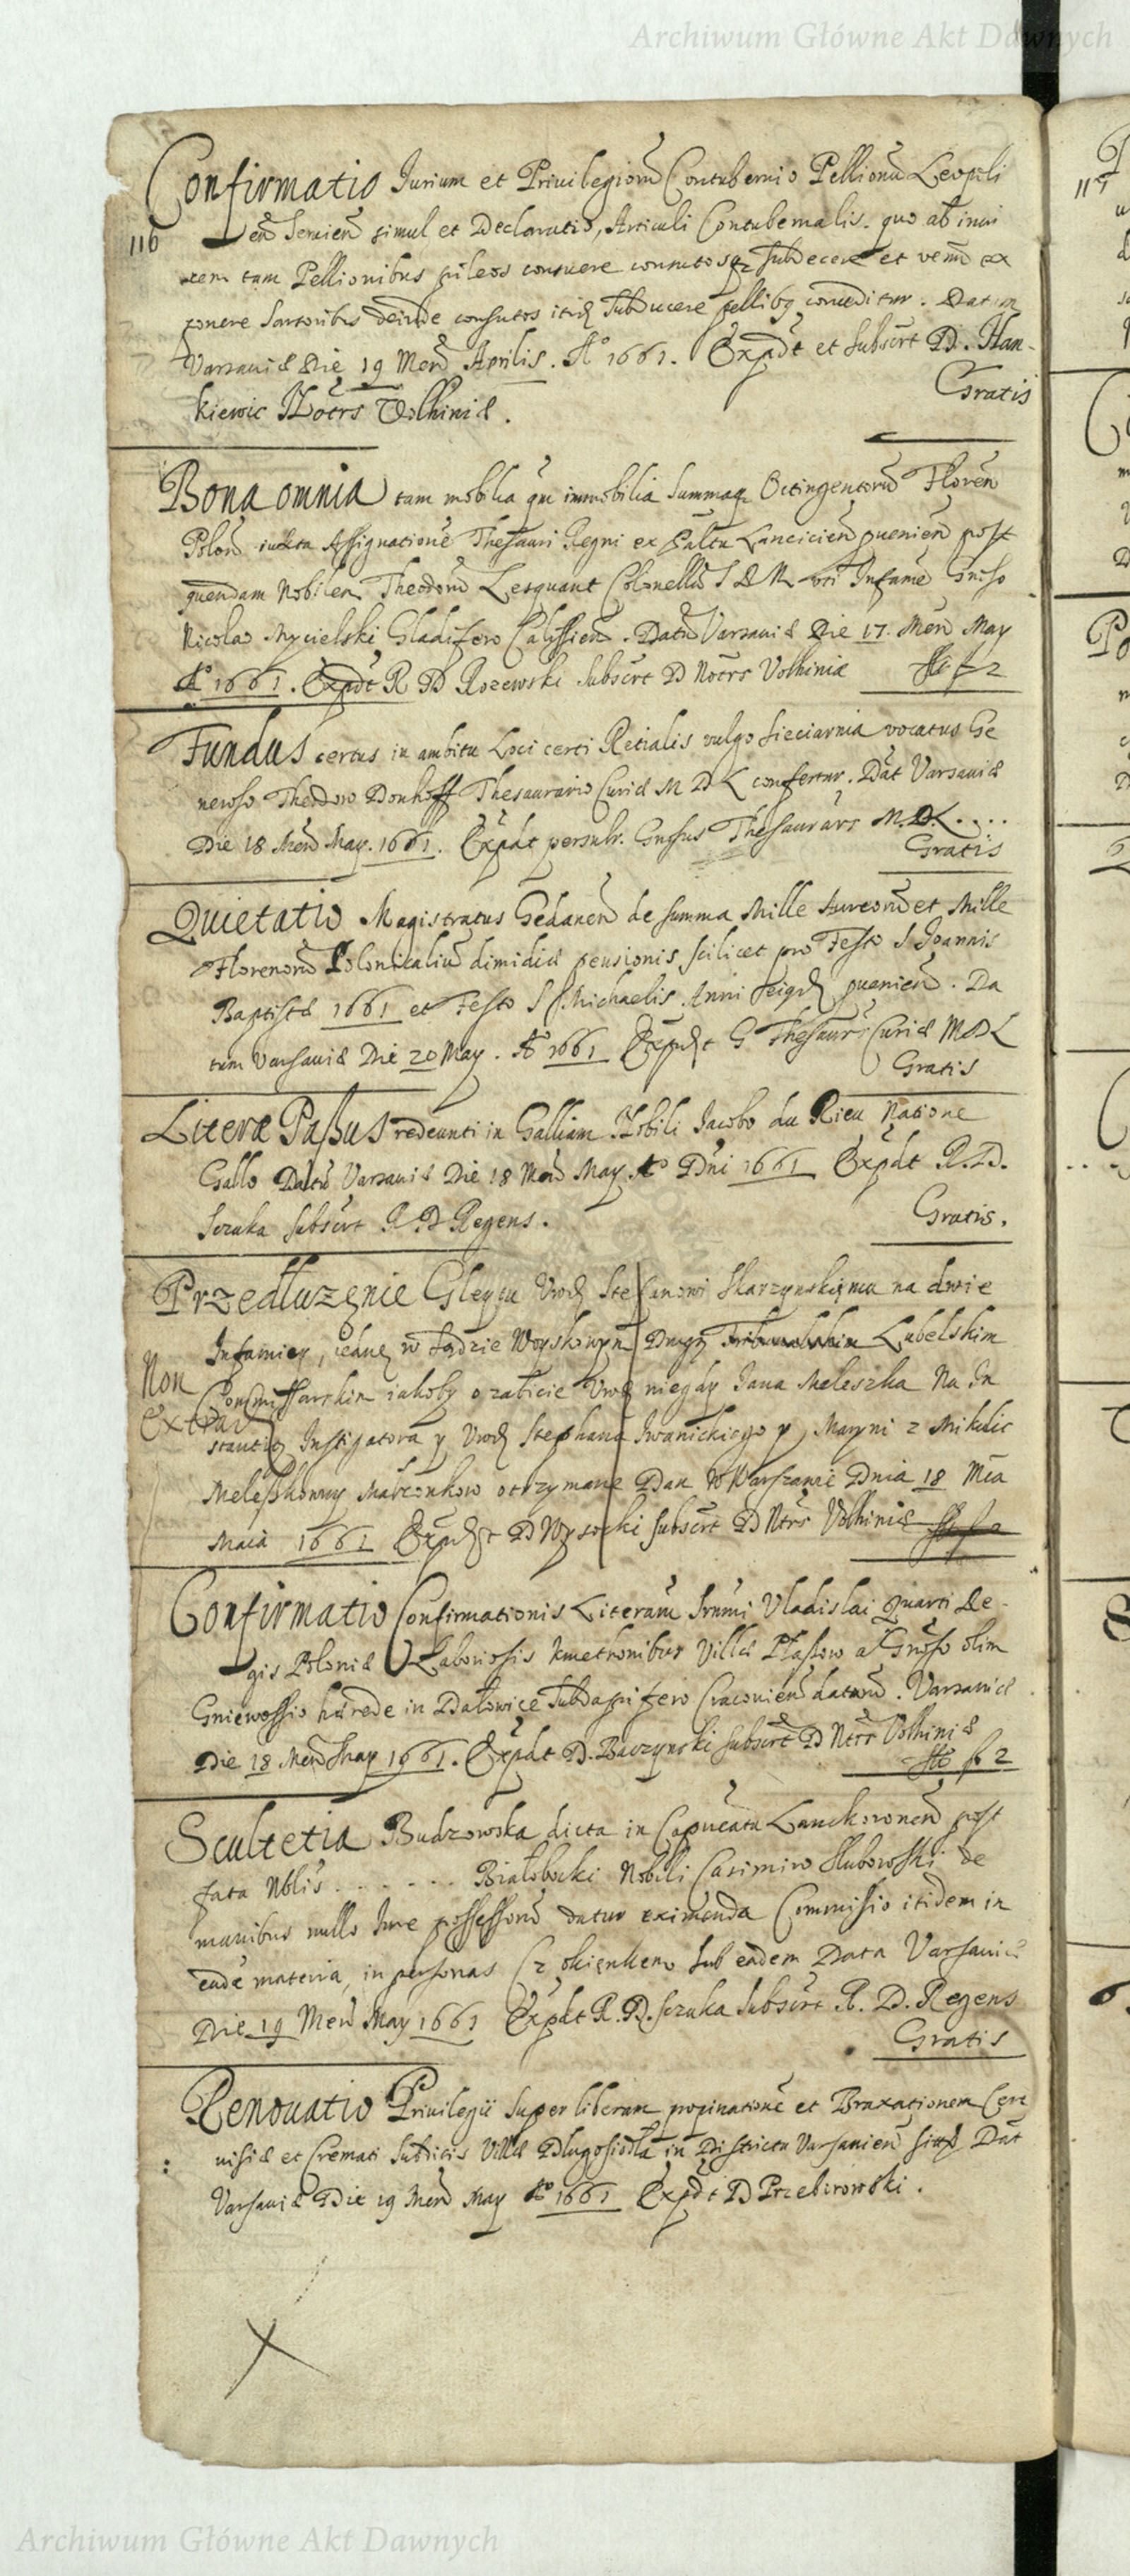 Archiwum Główne Akt Dawnych
Confirmatio Jurium et Priuilegiorũ Contubernio Pellionũ Leopoli
116
eñ Seruieñ simul et Declaratio, Articuli Contubernalis. quo ab inui
cem tam Pellionibus pileos consuere consutosq; subducere et venũ ex
ponere Sartoribus deinde consutos itid. subducere pellibq conceditur. Datum
Varsauiæ Die 19 Meñ Aprilis. Aº 1661. Expdt et subscrt D. Han-
kiewic Notrs Volhiniæ.
Gratis
Bona omnia tam mobilia qm immobilia Summaq; Octingentorũ Floreñ
Polon iuxta Assignationẽ Thesauri Regni ex Pltu Lancicieñ pueniẽn post
quendam Nobilem Theodorũ Lesquant Colonellũ S R M uti Infamẽ Gnoso
Nicolao Mycielski Gladifero Calissieñ. Datũ Varsauiæ Die 17. Meñ May
Aº 1661. Expdt R D Rozewski subscrt D Notrs Volhiniæ
Fundus certus in ambitu Loci certi Retialis vulgo Sieciarnia vocatus Ge
neroso Theodoro Donhoff Thesaurario Curiæ M D L confertur. Dat Varsauiæ
Die 18 Meñ May. 1661. Expdt persubr. Gnosus Thesaurars M.D.L....
Gratis
Quietatio Magistratus Gedaneñ de summa Mille Aureorũ et Mille
Florenorũ Polonicaliũ dimidiæ pensionis scilicet pro Festo S Joannis
Baptistæ 1661 et Festo S. Michaelis Anni eiqd pueniẽn. Da
tum Varsauiæ Die 20 May. Aº 1661 Expdt G Thesaurs Curiæ M D L
Gratis
Literæ Paßus redeunti in Galliam Nobili Jacobo du Rieu Natione
Gallo Datũ Varsauiæ Die 18 Meñ May Aº Dni 1661 Expdt R.D.
Sczuka subscrt R. D Regens.
Gratis.
Przedluzęnie Gleytu Vrod. Stefanowi Skarzynskięmu na dwie
Infamiey, iednę w Sądzie Woyskowym Drugą Tribunalskim Lubelskim
Non
Commissarskim iakoby o zabicie Vrod niegdy Jana Meleszka Na In
Extrad
stantią Instigatora y Vrod Stephana Iwanickiego y Maryni z Mikulic
Meleszkowny Małżonkow otrzymane Dan w Warszawie Dnia 18 Mca
Maia 1661 Expdt D Wysocki subscrt D Ntrs Volhiniæ
Confirmatio Confirmationis Literarũ Srnmi Vladislai Quarti Re-
gis Poloniæ Laboriosis Kmethonibus Villæ Płaszow a Gnoso olim
Gniewossio hærede in Dalowice Subdapifero Cracouieñ datarũ. Varsauiæ
Die 18 Meñ May 1661. Expdt D. Baczynski subscrt D Ntrs Volhiniæ
Scultetia Budzowska dicta in Capũeatu Lanckoroneñ post
fata Nblis . . . . . . Białobocki Nobili Casimiro Slubowski de
manibus nullo Jure possessorũ datur eximenda Commissio itidem in
eadẽ materia, in personas Cz okienkem Sub eadem Data Varsauiæ
Die 19 Meñ May 1661 Expdt R. D. Sczuka subscrt R. D. Regens
Gratis
Renouatio Priuilegii super liberam propinationẽ et Braxationem Cere
uisiæ et Cremati Subditis Villæ Dlugosiodla in Districtu Varsauieñ sitæ Dat
Varsauiæ Die 19 Meñ May Aº 1661 Expdt D Przeborowski.
Archiwum Główne Akt Dawnych